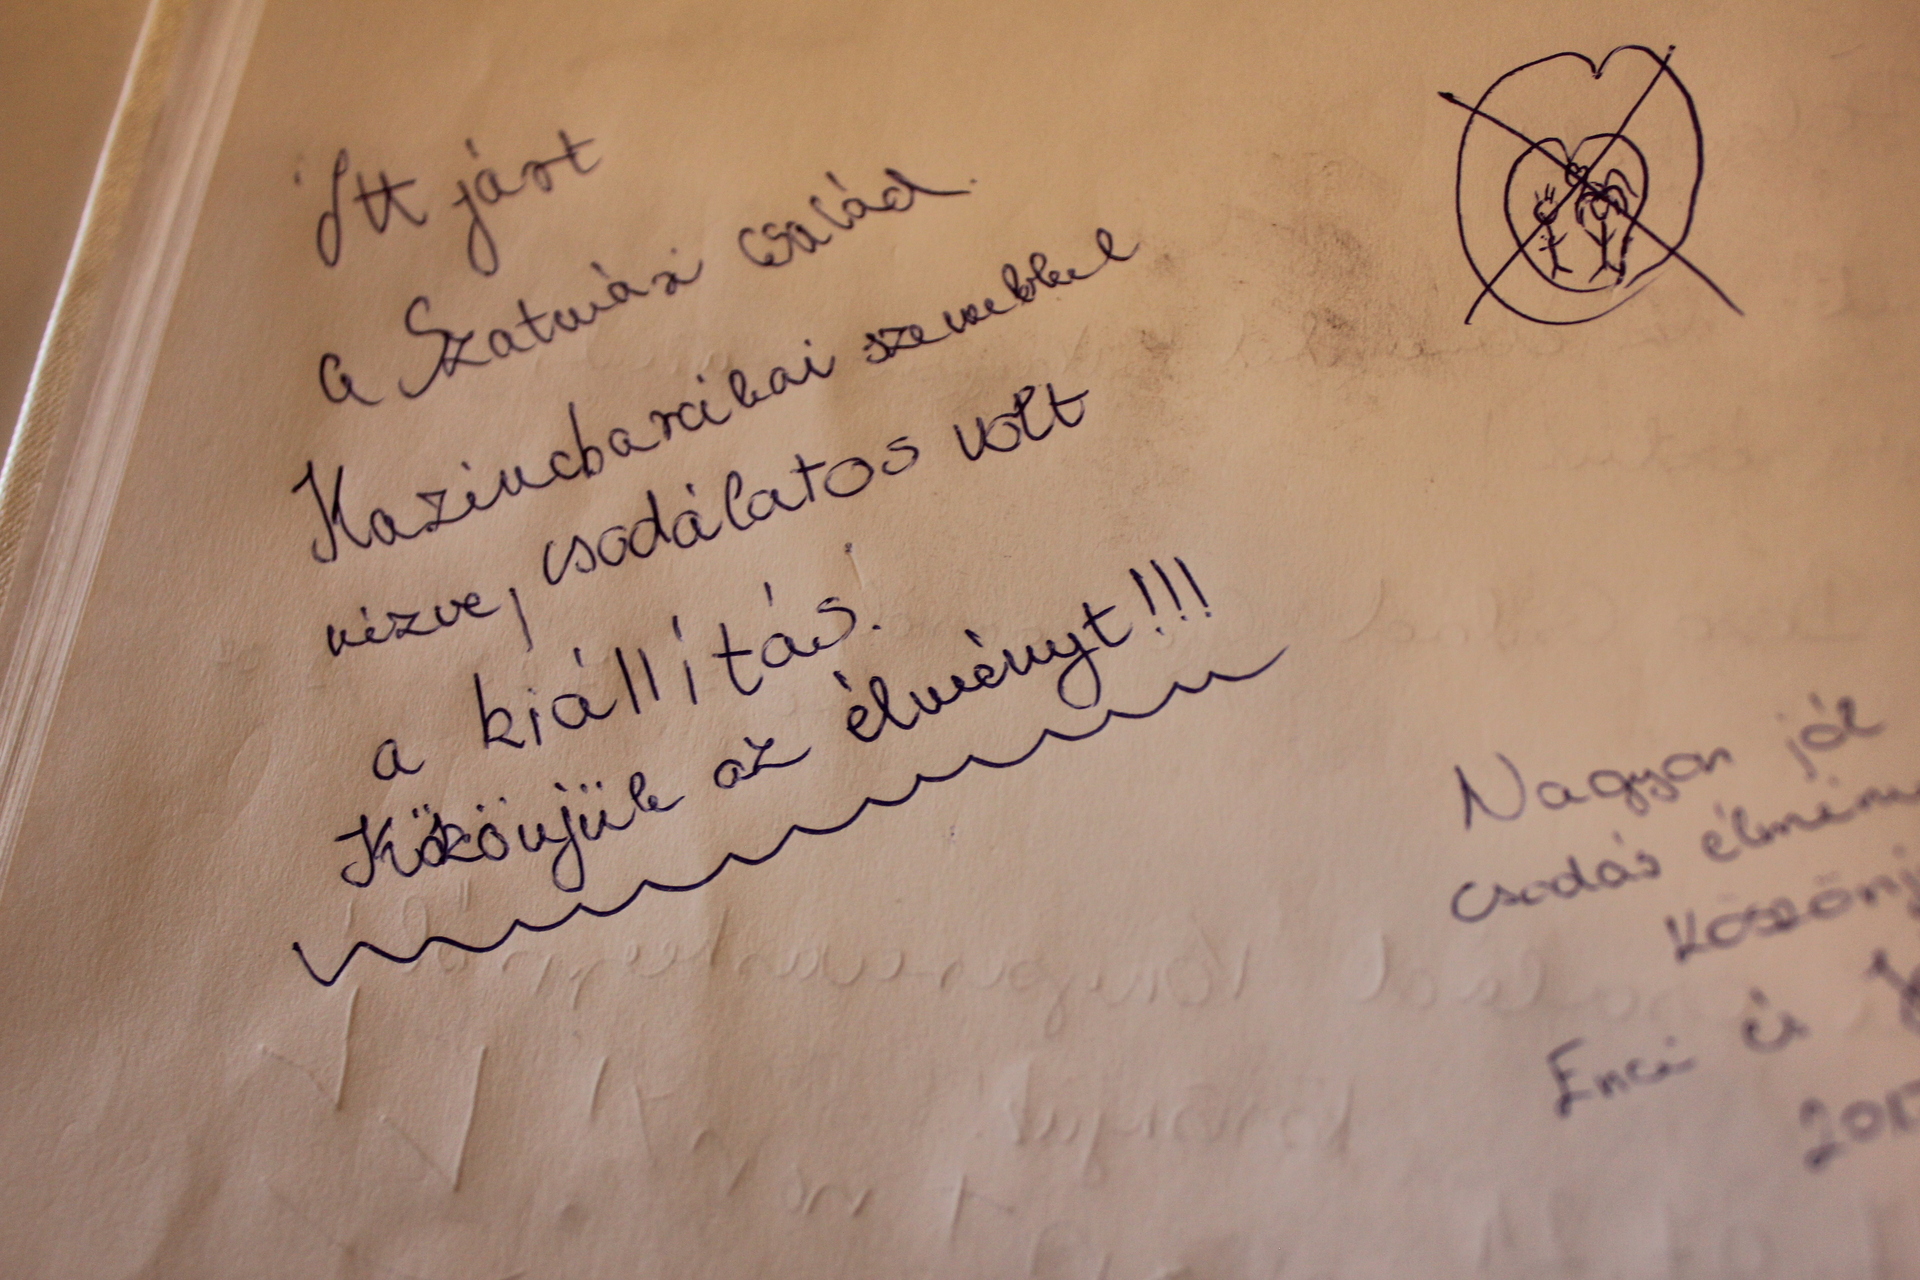 Itt járt
a Szatmári család.
Kazincbarcikai szemekkel
nézve, csodálatos volt
a kiállítás!
Kökönjük az élményt!!!
Nagyon jól
csodás élmény
Köszönj
Enci és
2017